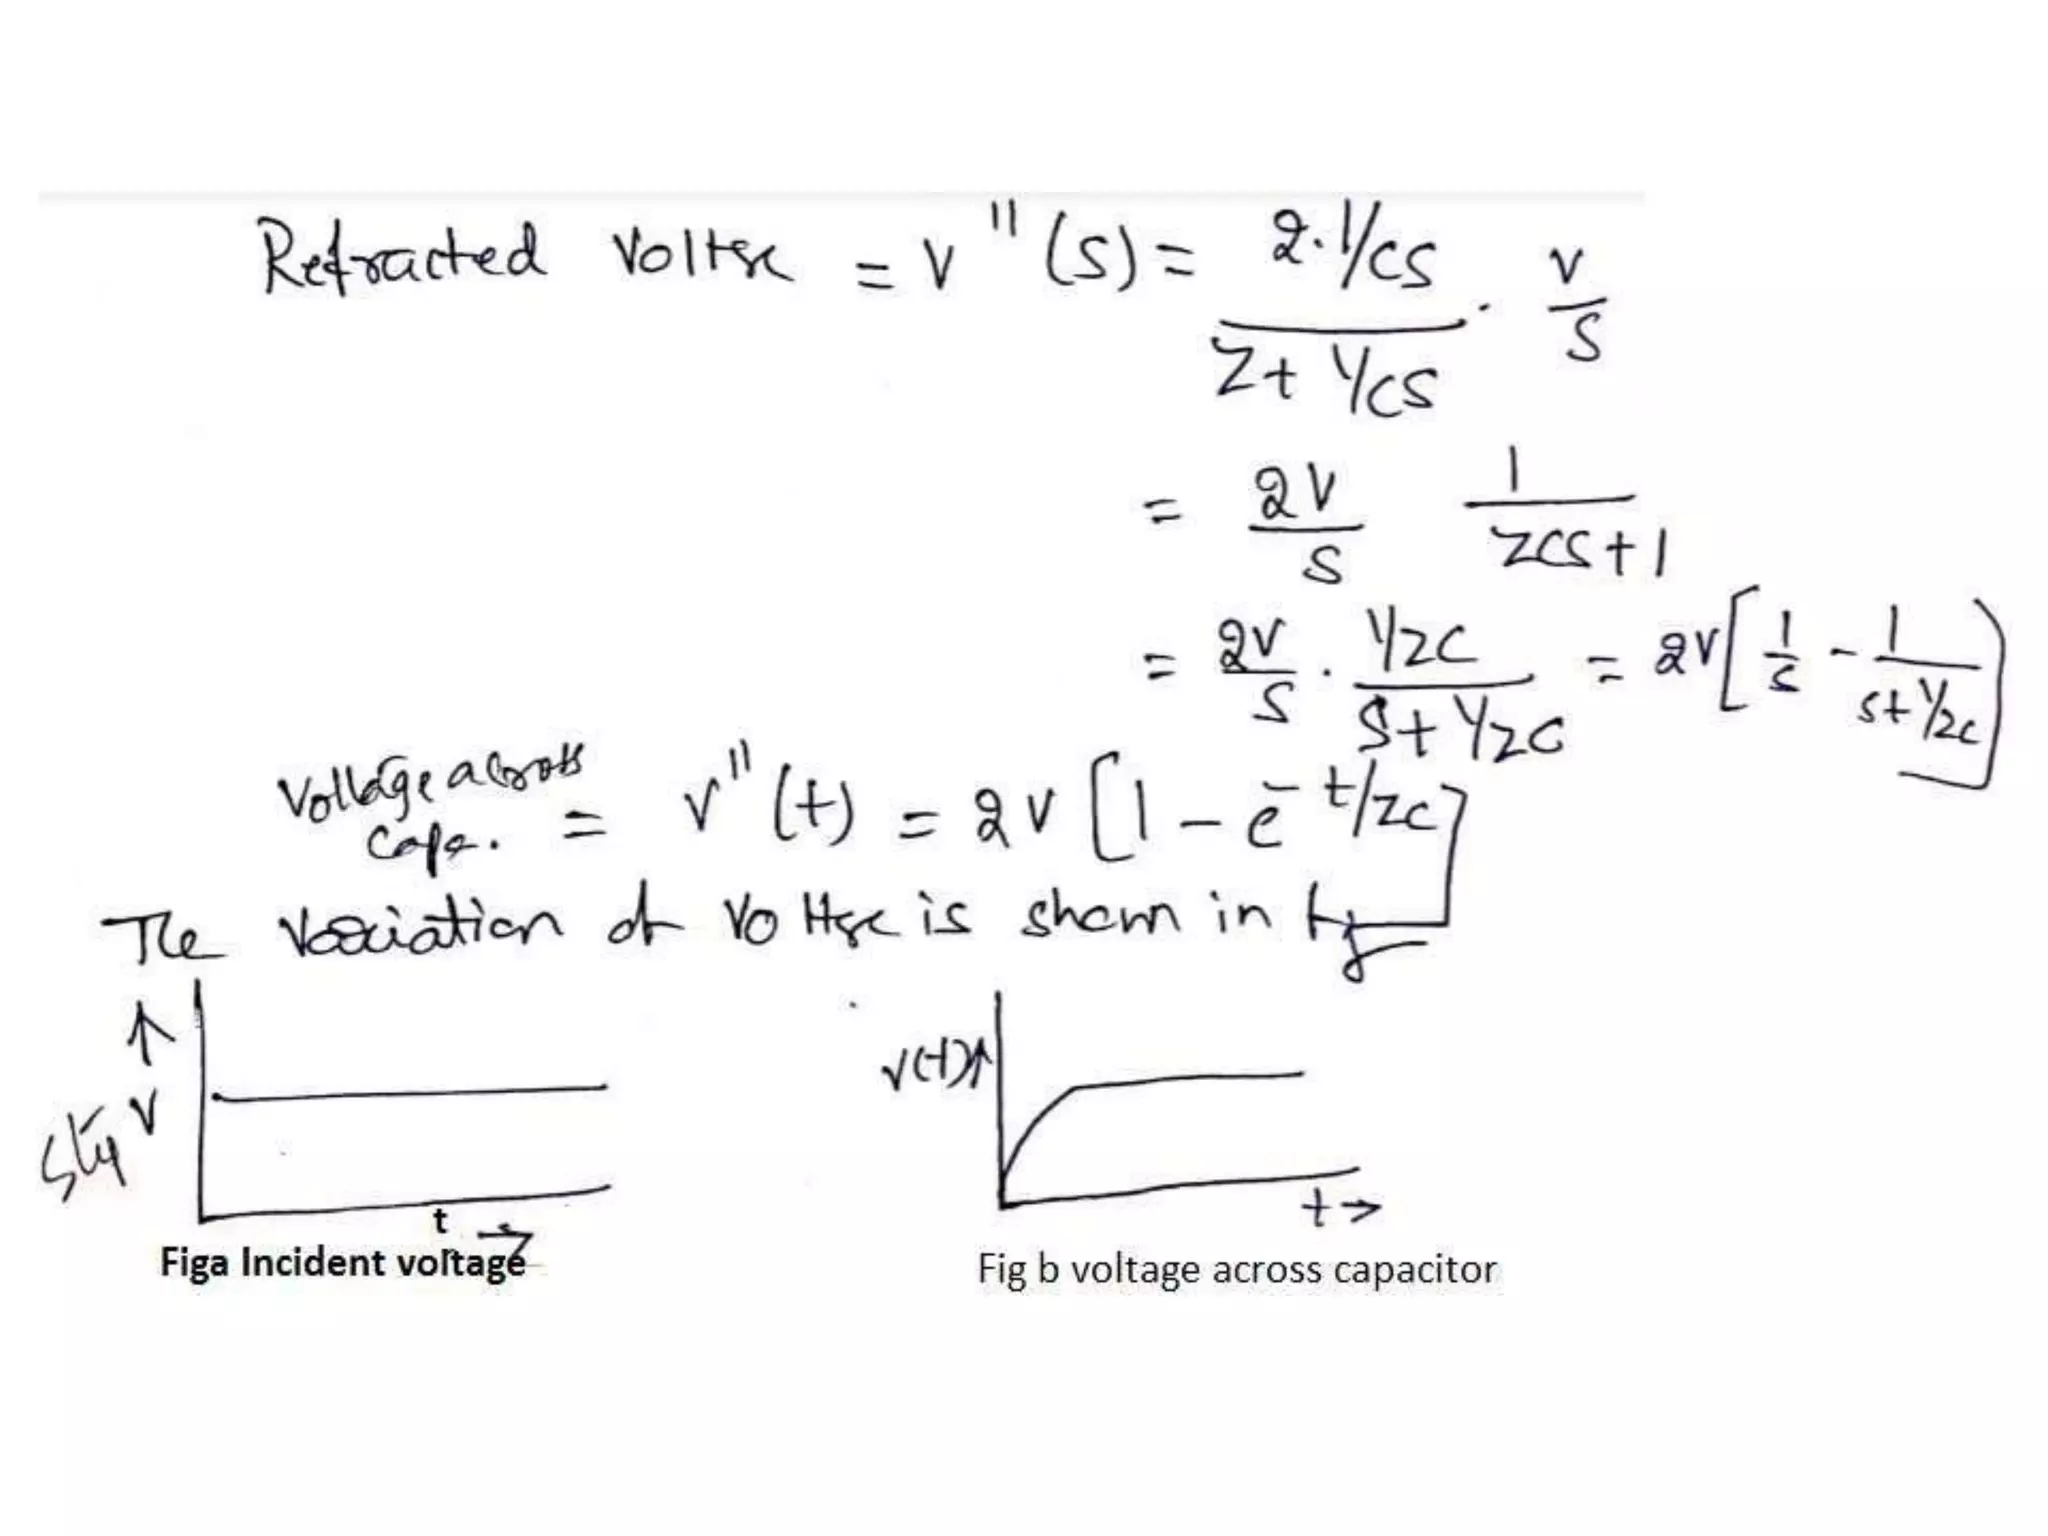 Refracted Voltge = V"(S) = 2.1/CS / Z+1/CS . V/S
= 2V/S 1/ZCS+1
= 2V/S . 1/ZC / S+1/ZC = 2V[1/S - 1/S+1/ZC]
Voltage across Capa. = V"(t) = 2V[1-e^-t/ZC]
The variation of Voltge is shown in fig
↑ V
V(t)↑
t →
t →
Figa Incident voltage
Fig b voltage across capacitor